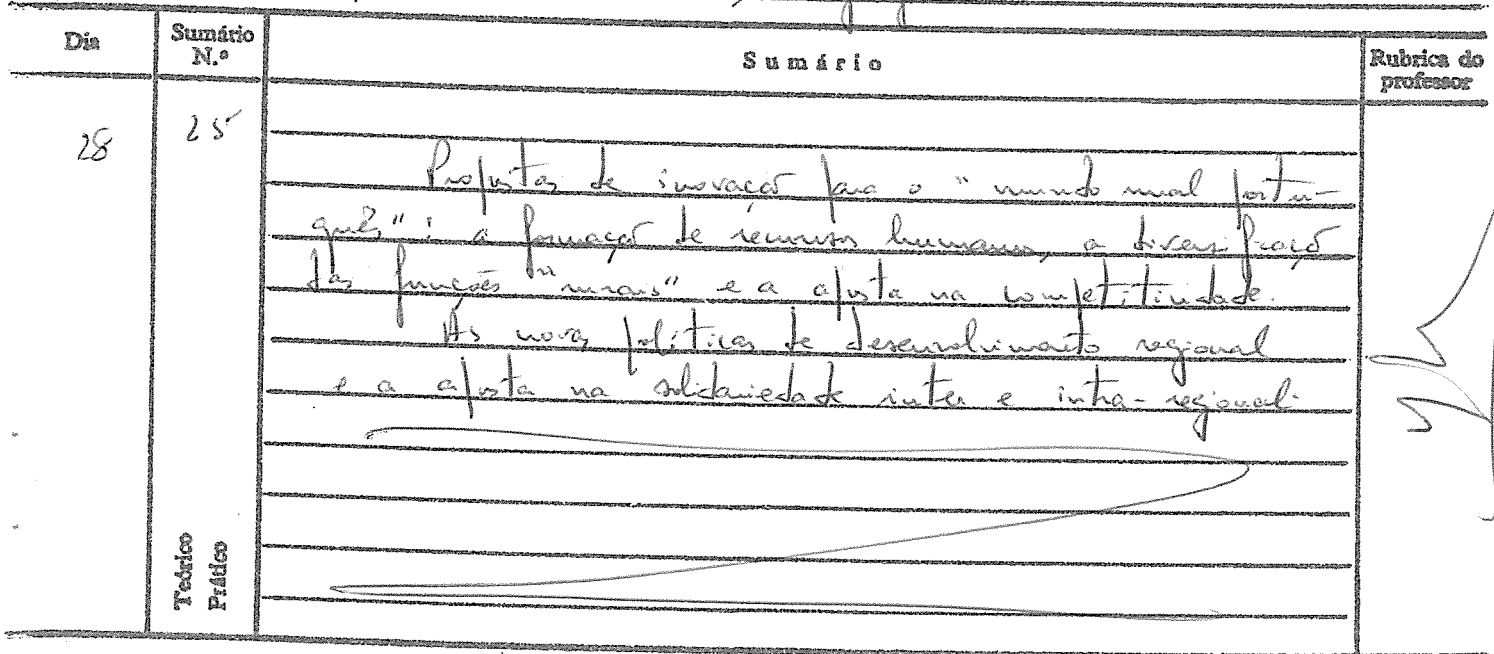 Dia
Sumário N.º
Sumário
Rubrica do professor
28
25
Propostas de inovação para o "mundo rural portu-
guês": a formação de recursos humanos, a diversificação
das funções "rurais" e a aposta na competitividade.
As novas políticas de desenvolvimento regional
e a aposta na solidariedade inter e intra-regional.
Teórico
Prático